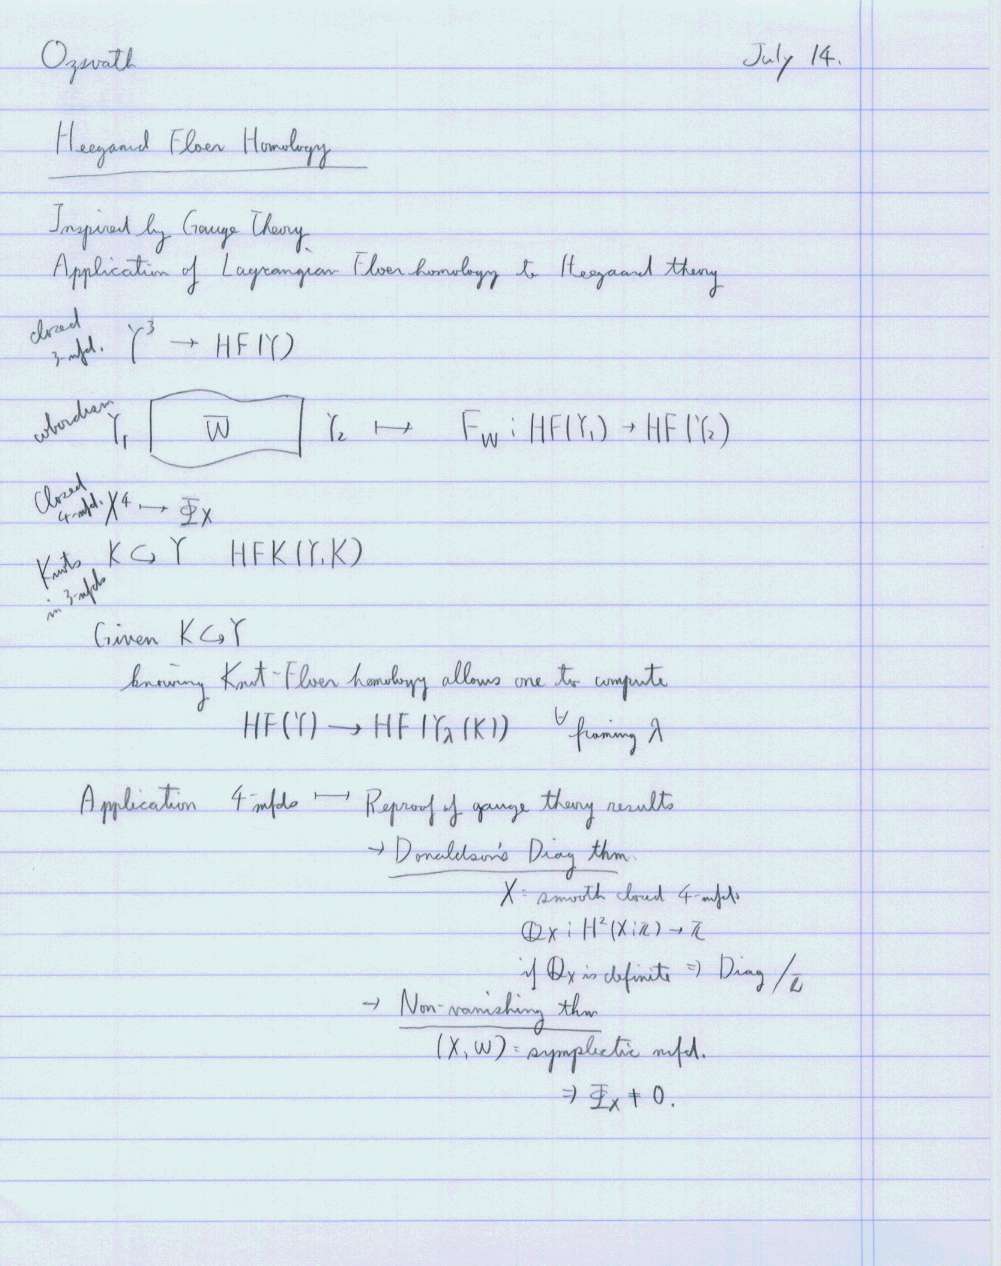 Ozsvath July 14.
Heegaard Floer Homology
Inspired by Gauge Theory.
Application of Lagrangian Floer homology to Heegaard theory
closed 3-mfd. Y³ → HF(Y)
cobordism Y₁ W Y₂ ↦ F_W : HF(Y₁) → HF(Y₂)
Closed 4-mfd. X⁴ ↦ Φ_X
Knots in 3-mfds K ↪ Y HFK(Y,K)
Given K ↪ Y
knowing Knot-Floer homology allows one to compute
HF(Y) → HF(Y_λ(K)) ∀ framing λ
Application 4-mfds ↦ Reproof of gauge theory results
→ Donaldson's Diag thm.
X = smooth closed 4-mfds
Q_X : H²(X;ℤ) → ℤ
if Q_X is definite ⇒ Diag/ℤ
→ Non-vanishing thm
(X, ω) = symplectic mfd.
⇒ Φ_X ≠ 0.